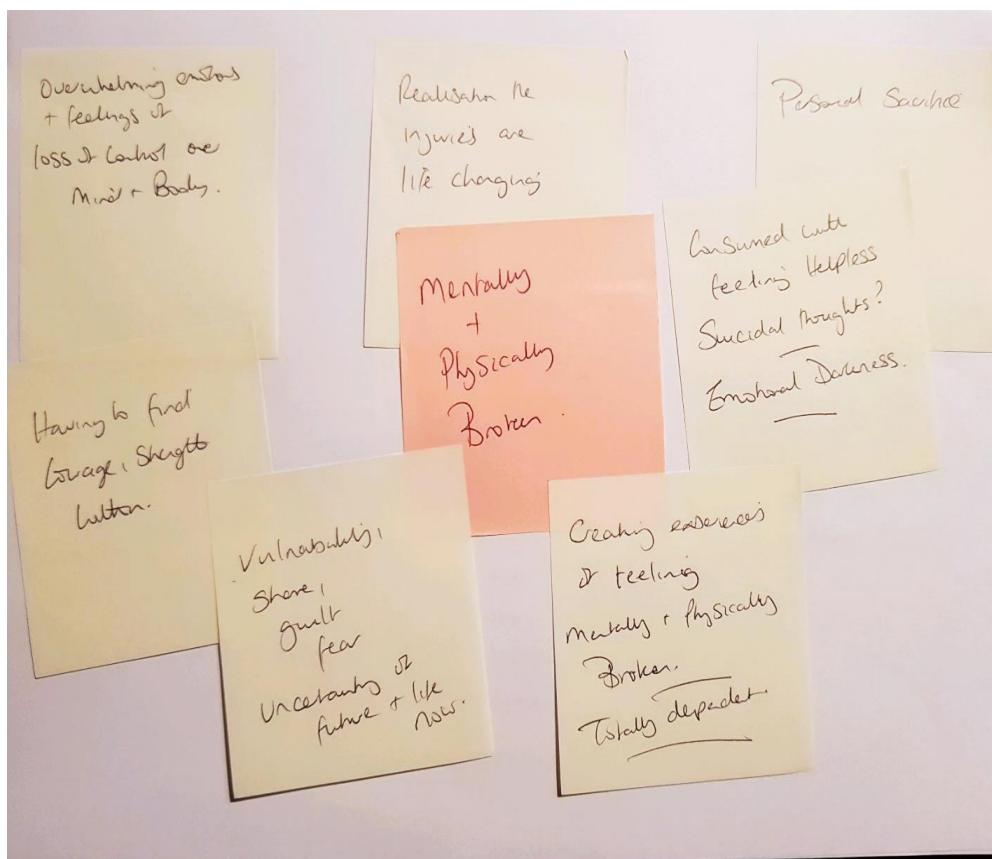 Overwhelming emotions
+ feelings of
loss of control over
Mind + Body.
Realisation the
injuries are
life changing
Personal Sacrifice
Mentally
+
Physically
Broken.
Consumed with
feeling Helpless
Suicidal thoughts?
Emotional Darkness.
Having to find
Courage, Strength
Vulnerability,
Shame,
guilt
fear
Uncertainty of
future + life
now.
Creating experiences
of feeling
Mentally + Physically
Broken.
Totally dependent.